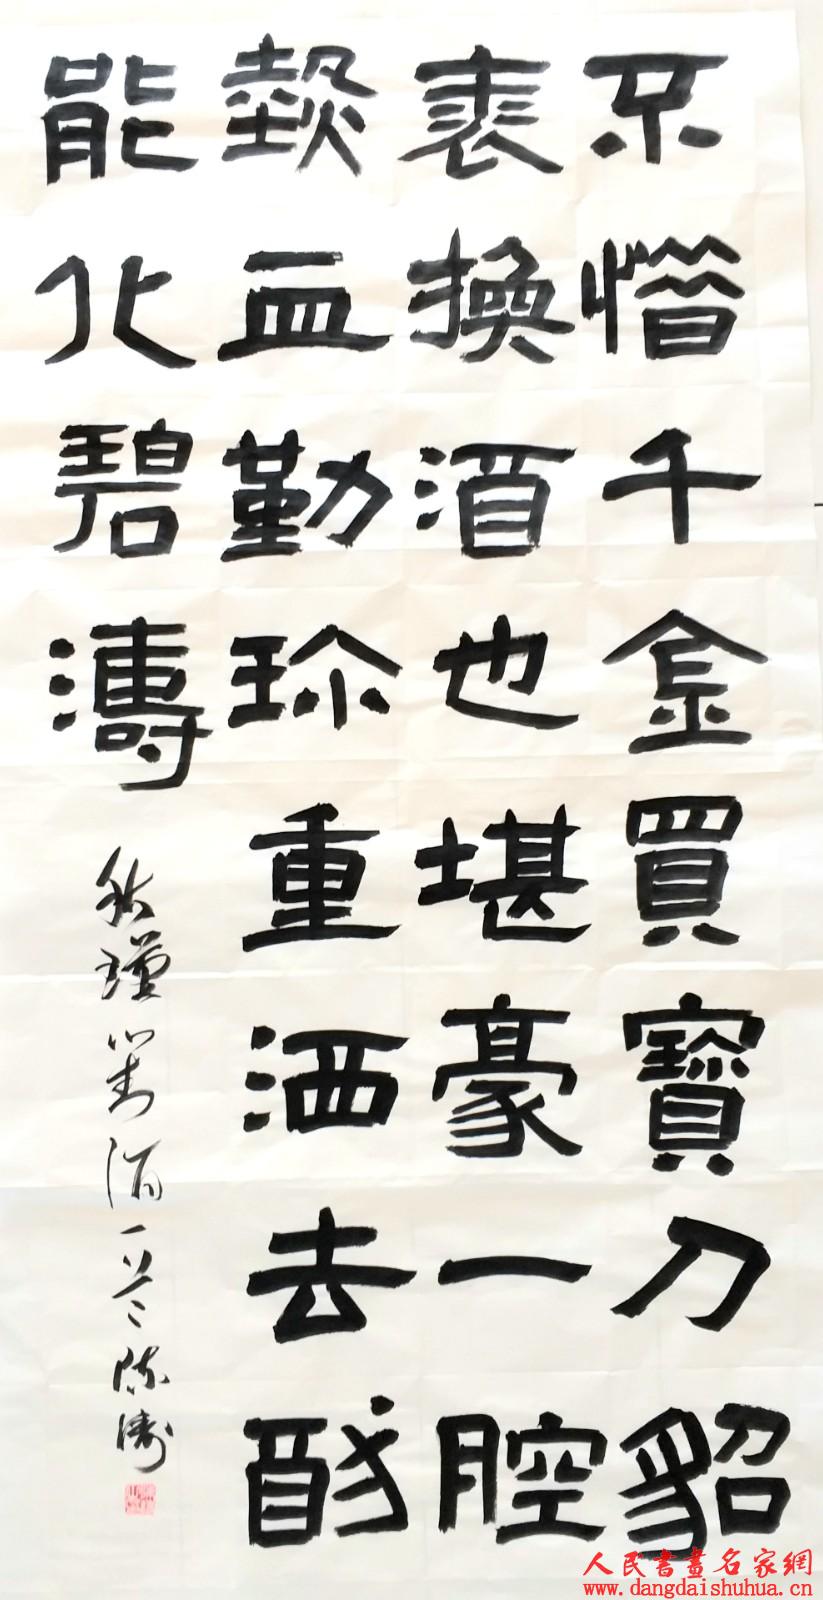 不惜千金買寶刀貂
裘換酒也堪豪一腔
熱血勤珎重洒去猶
能化碧濤
秋瑾對酒一首 陳濤
人民書畫名家網
www.dangdaishuhua.cn